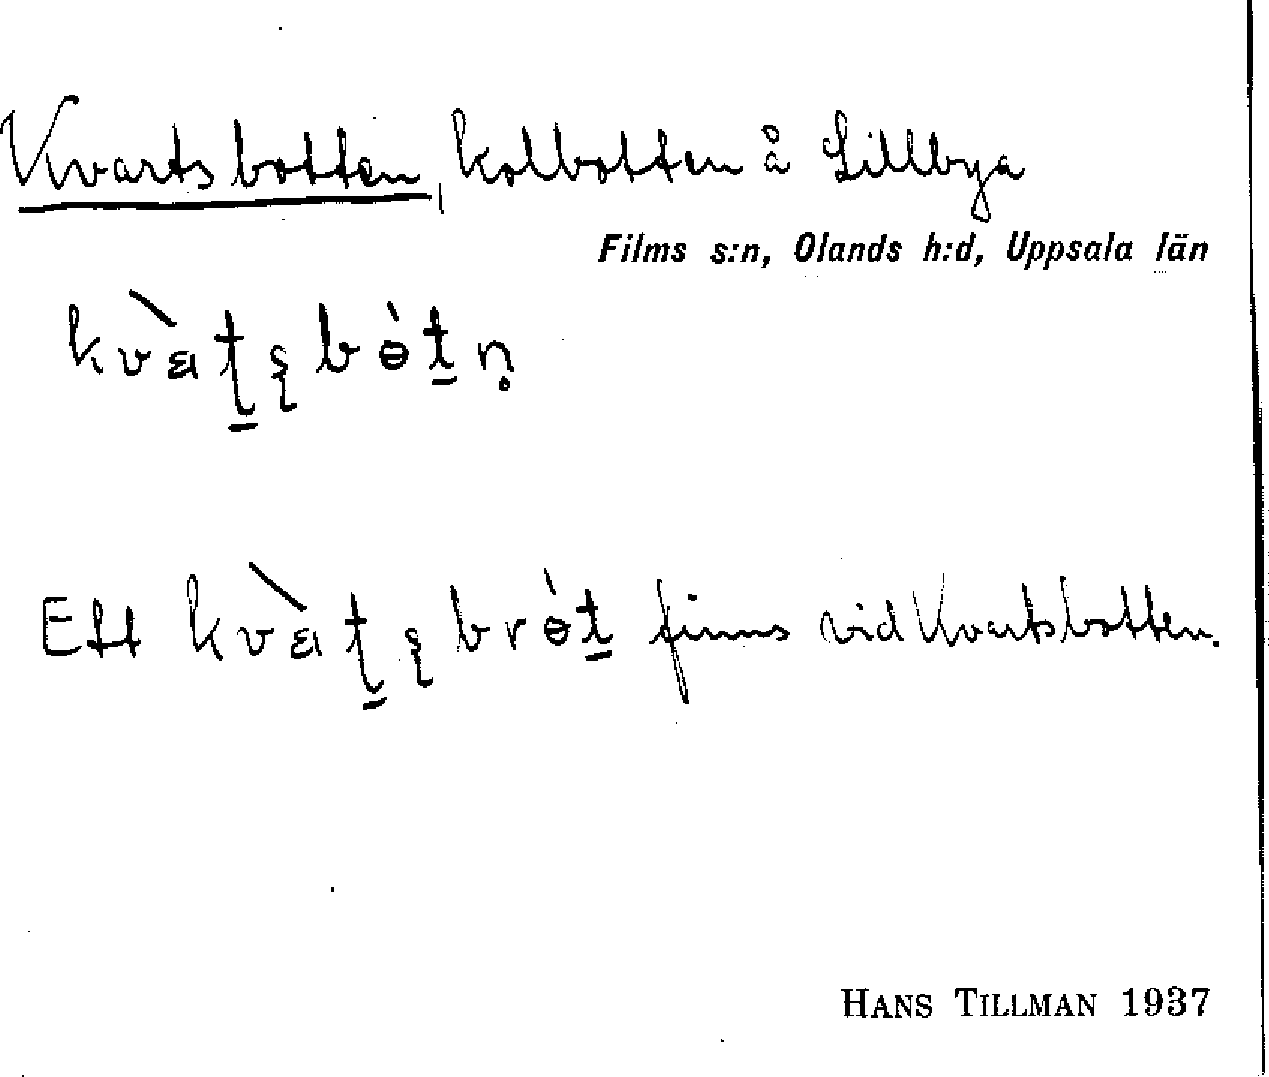 Kvartsbotten, kolbotten å Lillbya
Films s:n, Olands h:d, Uppsala län
Ett finns vid Kvartsbotten.
HANS TILLMAN 1937